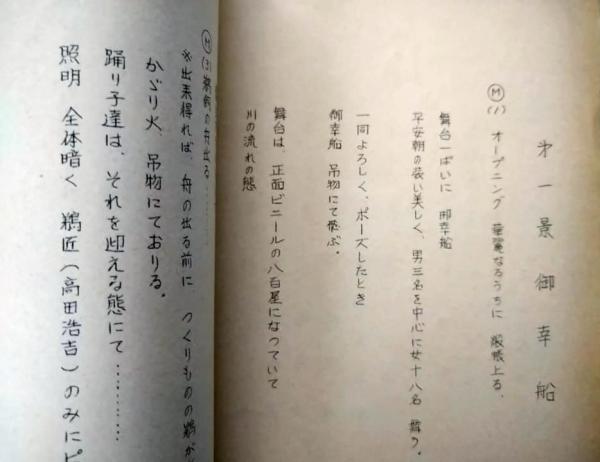 第一景 御幸船
Ⓜ(1) オープニング 華麗なるうちに 緞帳上る、
舞台一ぱいに 御幸船
平安朝の装い美しく、男三名を中心に女十八名 舞う。
一同よろしく、ポーズしたとき
御幸船 吊物にて飛ぶ。
舞台は、正面ビニールの八百星になつていて
川の流れの態
Ⓜ(3) 鵜飼の舟出る………
※出来得れば、舟の出る前に つくりものの鵜が
かゞり火、吊物にておりる。
踊り子達は、それを迎える態にて…………
照明 全体暗く 鵜匠(高田浩吉)のみにピ